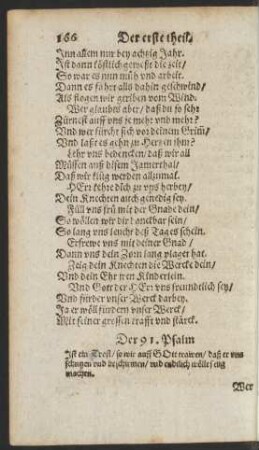 166 Der erste theil.
Inn allem nur bey achtzig Jahr.
Ist dann köstlich gewest die zeit/
So war es nun müh vnd arbeit.
Dann es fährt alls dahin geschwind/
Als flogen wir getriben vom Wind.
Wer glaubts aber/ daß du so sehr
Zürnest auff vns je mehr vnd mehr?
Vnd wer fürcht sich vor deinem Griñ/
Vnd laßt es gehn zu Hertzen ihm?
Lehr vns bedencken/ daß wir all
Müssen auß disem Jamerthal/
Daß wir klug werden allzumal.
HErr kehre dich zu vns herbey/
Dein Knechten auch genedig sey.
Füll vns früh mit der Gnade dein/
So wöllen wir dir danckbar sein/
So lang vns leucht deß Tages schein.
Erfrewe vns mit deiner Gnad/
Dann vns dein Zorn lang plaget hat.
Zeig dein Knechten die Wercke dein/
Vnd dein Ehr jren Kinderlein.
Vnd Gott der HErr vns freundlich sey/
Vnd fürder vnser Werck darbey.
Ja er wöll fürdern vnser Werck/
Mit seiner grossen krafft vnd stärck.
Der 91. Psalm
Ist ein Trost/ so wir auff GOtt trawen/ daß er vns
schützen vnd beschirmen/ vnd endtlich wölle seug
machen.
Wer